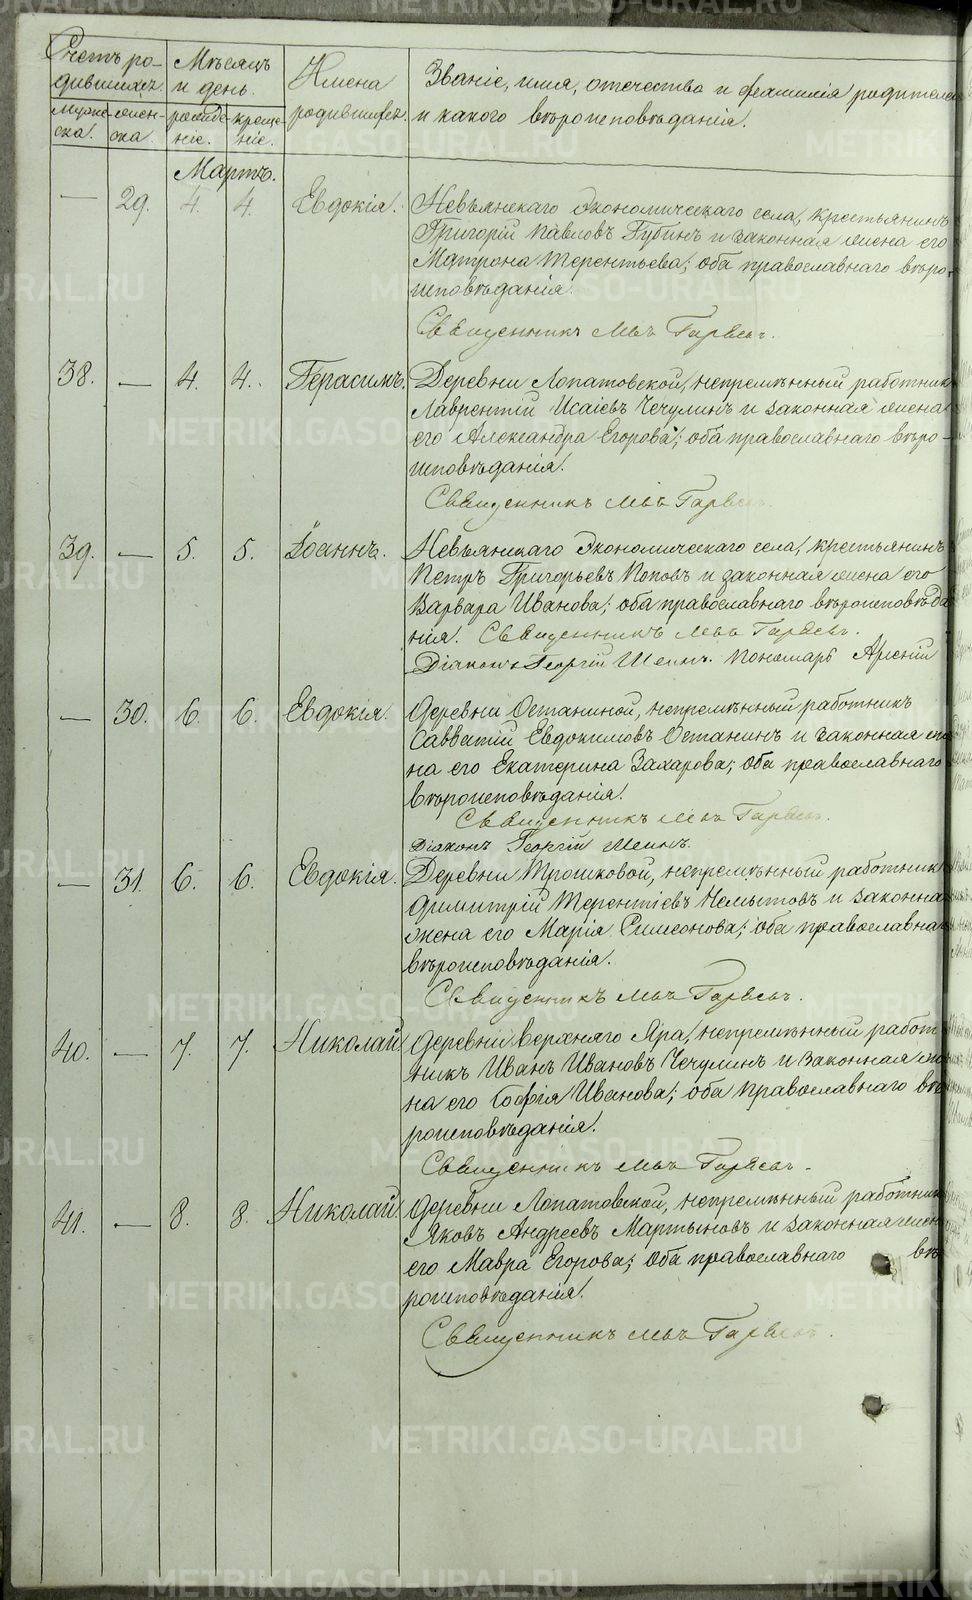 Счетъ ро-
дившихся.
Мѣсяцъ
и день.
Имена
родившихся.
Званіе, имя, отчество и фамилія родителей
и какого вѣроисповѣданія.
Муже-
ска.
Жен-
ска.
рожде-
ніе.
креще-
ніе.
Мартъ.
— 29. 4. 4. Евдокія. Невьянскаго Экономическаго села, крестьянинъ
Григорій Павловъ Губинъ и законная жена его
Матрона Терентьева; оба православнаго вѣро-
исповѣданія.
Священникъ Левъ
38. — 4. 4. Герасимъ. Деревни Лопатовской, непремѣнный работникъ
Лаврентій Исаіевъ Чечулинъ и законная жена
его Александра Егорова; оба православнаго вѣро-
исповѣданія.
Священникъ Левъ
39. — 5. 5. Іоаннъ. Невьянскаго Экономическаго села, крестьянинъ
Петръ Григорьевъ Поповъ и законная жена его
Варвара Иванова; оба православнаго вѣроисповѣда
нія. Священникъ Левъ
Діаконъ Георгій Пономарь Арсеній
— 30. 6. 6. Евдокія. Деревни Останиной, непремѣнный работникъ
Савватій Евдокимовъ Останинъ и законная же
на его Екатерина Захарова; оба православнаго
вѣроисповѣданія.
Священникъ Левъ
Діаконъ Георгій
— 31. 6. 6. Евдокія. Деревни Трошковой, непремѣнный работникъ
Димитрій Терентіевъ Немытовъ и законная
жена его Марія Симеонова; оба православнаго
вѣроисповѣданія.
Священникъ Левъ
40. — 7. 7. Николай Деревни верхняго Яра, непремѣнный работ
никъ Иванъ Ивановъ Чечулинъ и законная же
на его Софія Иванова; оба православнаго вѣ
роисповѣданія.
Священникъ Левъ
41. — 8. 8. Николай. Деревни Лопатовской, непремѣнный работникъ
Яковъ Андреевъ Мартыновъ и законная жена
его Мавра Егорова; оба православнаго вѣ
роисповѣданія.
Священникъ Левъ
METRIKI.GASO-URAL.RU